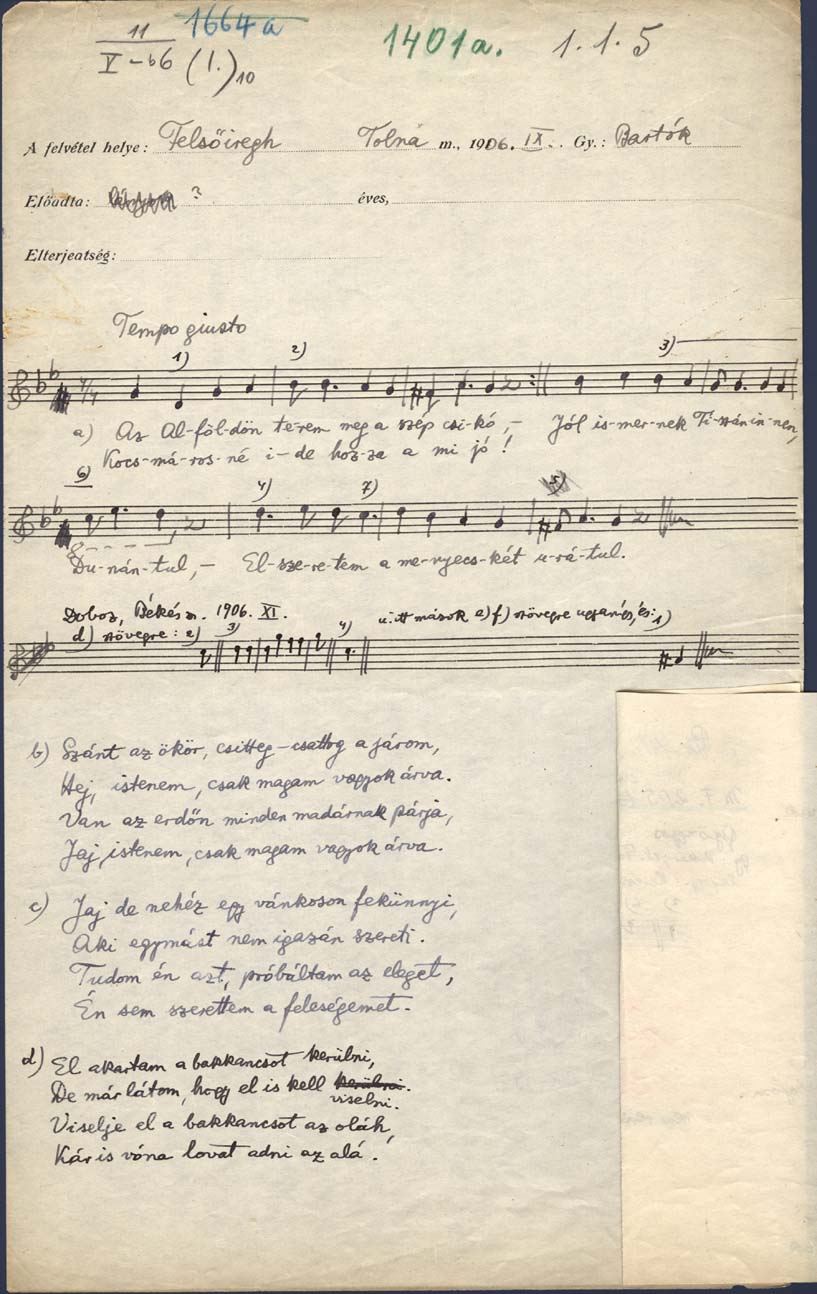 11
V-66 (1.)10
1664a
1401a.
1. 1. 5
A felvétel helye: Felsőiregh Tolna m., 1906. IX. Gy.: Bartók
Előadta: ? éves,
Elterjeatség:
Tempo giusto
1) 2) 3)
4/4
a) Az Al-föl-dön te-rem meg a szép csi-kó, – Jól is-mer-nek Ti-szán in-nen,
Kocs-má-ros-né i-de hoz-za a mi jó!
6) 4) 7) 5)
Du-nán-tul, – El-sze-re-tem a me-nyecs-két u-rá-tul.
Doboz, Békés m. 1906. XI.
u. itt mások e) f) szövegre ugyanígy, és: 1)
d) szövegre: 2) 3) 4)
b) Szánt az ökör, csitteg-csattog a járom,
Hej, istenem, csak magam vagyok árva.
Van az erdőn minden madárnak párja,
Jaj, istenem, csak magam vagyok árva.
c) Jaj de nehéz egy vánkoson fekünnyi,
Aki egymást nem igazán szereti.
Tudom én azt, próbáltam az eleget,
Én sem szerettem a feleségemet.
d) El akartam a bakkancsot kerülni,
De már látom, hogy el is kell kerülni.
viselni.
Viselje el a bakkancsot az oláh,
Kár is vóna lovat adni az alá!